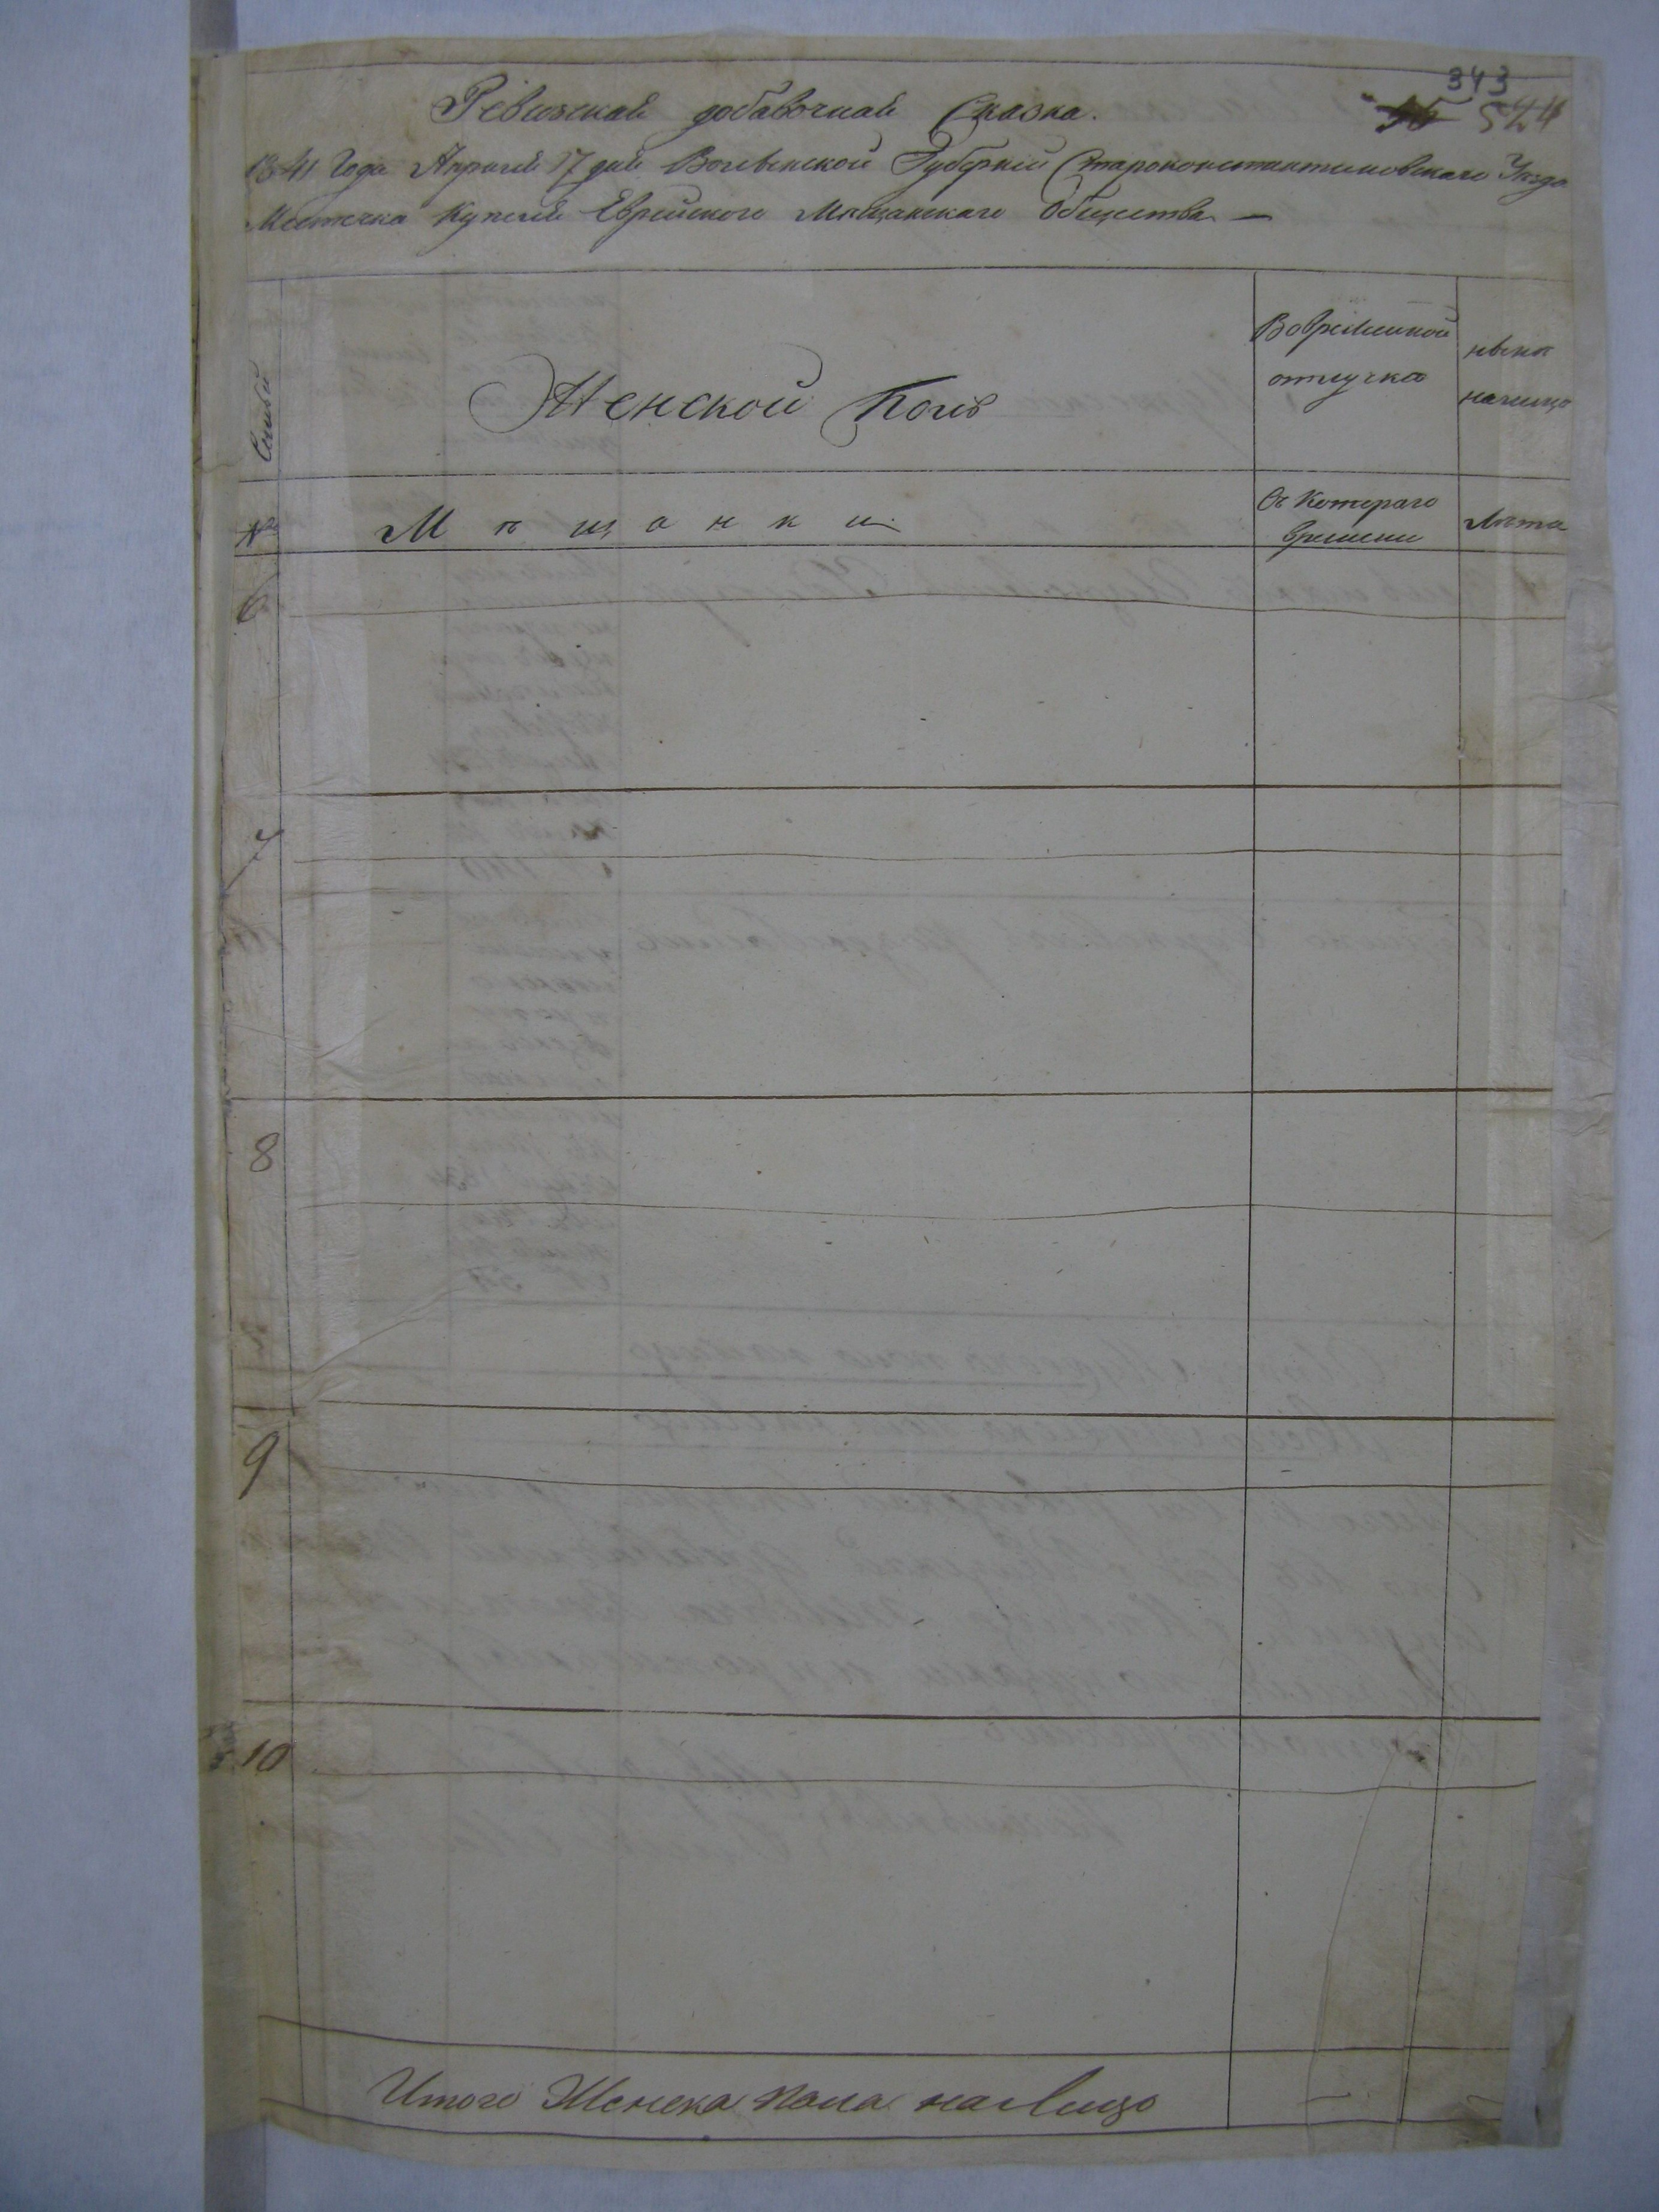 343
524
Ревизская добавочная Сказка.
1841 Года Апреля 17 дня Волынской Губернiи Староконстантиновскаго Уезда
Местечка Купеля Еврейского Мещанскаго Общества —
Семьи
Женской Полъ
Во временной
отлучке
ныне
налицо
№
Мѣщанки.
Съ Котораго
времени
Лѣта
6
7
8
9
10
Итого Женска пола на лицо